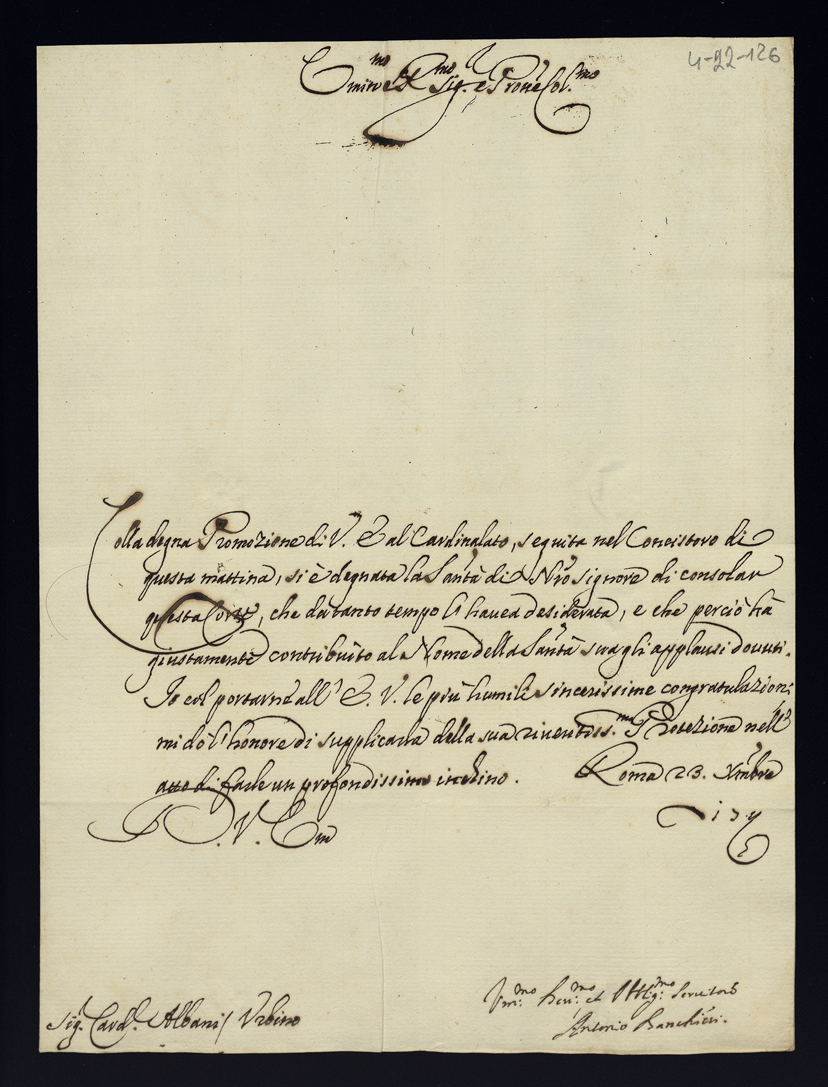 4-22-126
Em.mo e R.mo Sig.r e P'rone Col.mo
Colla degna Promozione di V. E. al Cardinalato, seguita nel Concistoro di
questa mattina, si è degnata la Santà di Nro Signore di consolar
questa Corte, che da tanto tempo l'havea desiderata, e che perciò hà
giustamente contribuito al Nome della Santà sua gli applausi douuti.
Io col portarne all' E. V. le più humili sincerissime congratulazioni
mi dò l'honore di supplicarla della sua riueritiss.ma Protezione nell'
atto di farle un profondissimo inchino. Roma 23. Xmbre
V. Em
Vm.mo Deu.mo et Obblig.mo Seruitore
Antonio Banchieri.
Sig.r Card.l Albani / Vrbino